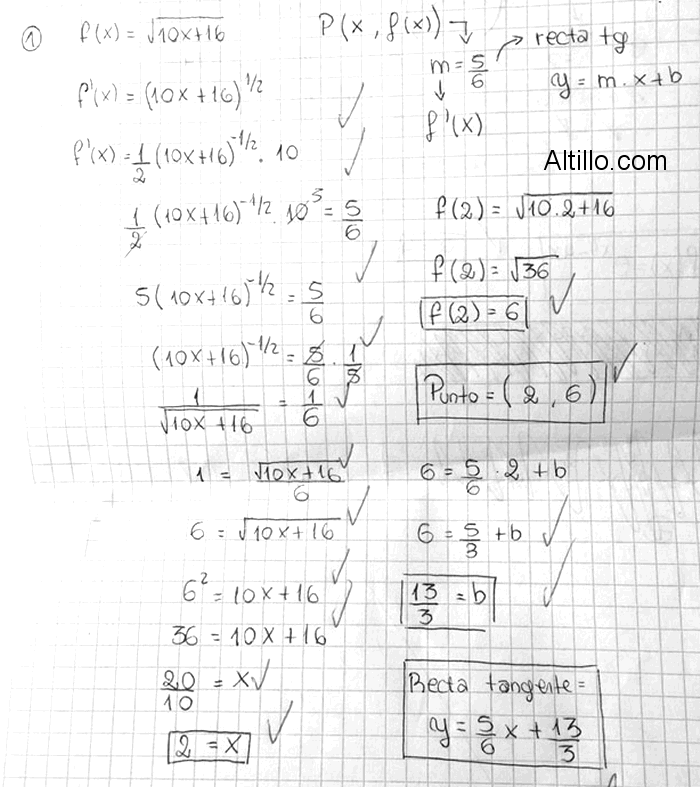 ① f(x) = √10x+16
f'(x) = (10x + 16)^1/2
f'(x) = 1/2 (10x+16)^-1/2 . 10
1/2 (10x+16)^-1/2 . 10 5 = 5/6
5 (10x+16)^-1/2 = 5/6
(10x+16)^-1/2 = 5/6 . 1/5
1/√10x + 16 = 1/6
1 = √10x+16/6
6 = √10x+16
6² = 10x + 16
36 = 10x + 16
20/10 = x
2 = x
P(x, f(x))
m = 5/6 → recta tg
y = m . x + b
f'(x)
Altillo.com
f(2) = √10.2+16
f(2) = √36
f(2) = 6
Punto = (2, 6)
6 = 5/6 . 2 + b
6 = 5/3 + b
13/3 = b
Recta tangente =
y = 5/6 x + 13/3